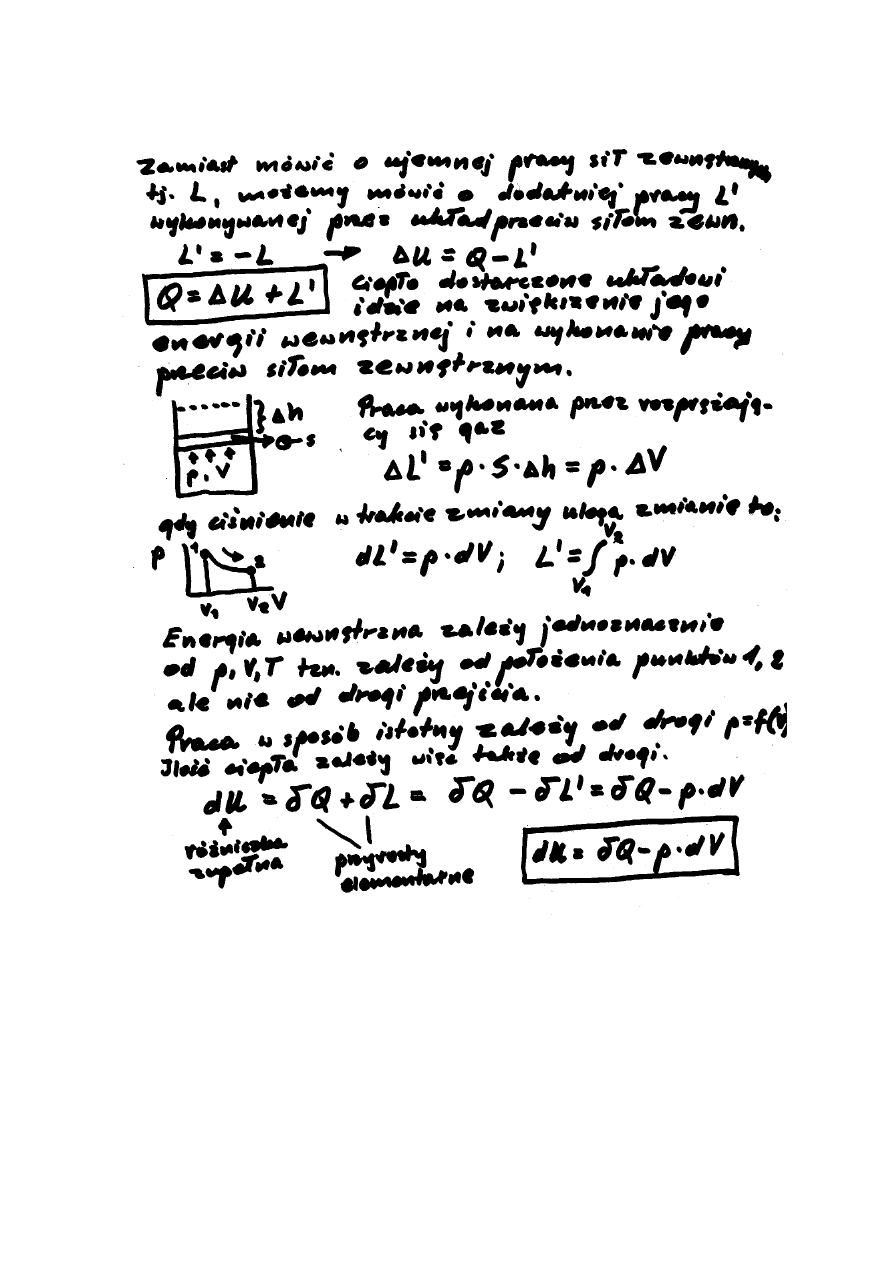 Zamiast mówić o ujemnej pracy sił zewnętrznych
tj. L, możemy mówić o dodatniej pracy L'
wykonywanej przez układ przeciw siłom zewn.
L' = -L → ΔU = Q - L'
Q = ΔU + L' Ciepło dostarczone układowi
idzie na zwiększenie jego
energii wewnętrznej i na wykonanie pracy
przeciw siłom zewnętrznym.
Δh Praca wykonana przez rozprężają-
S cy się gaz
p, V ΔL' = p · S · Δh = p · ΔV
gdy ciśnienie w trakcie zmiany ulega zmianie to:
p 1 2 dL' = p · dV ; L' = ∫ p · dV
V₂
V₁
V₁ V₂ V
Energia wewnętrzna zależy jednoznacznie
od p, V, T tzn. zależy od położenia punktów 1, 2
ale nie od drogi przejścia.
Praca w sposób istotny zależy od drogi p=f(V)
Ilość ciepła zależy więc także od drogi.
dU = δQ + δL = δQ - δL' = δQ - p·dV
różniczka
zupełna
przyrosty
elementarne
dU = δQ - p · dV